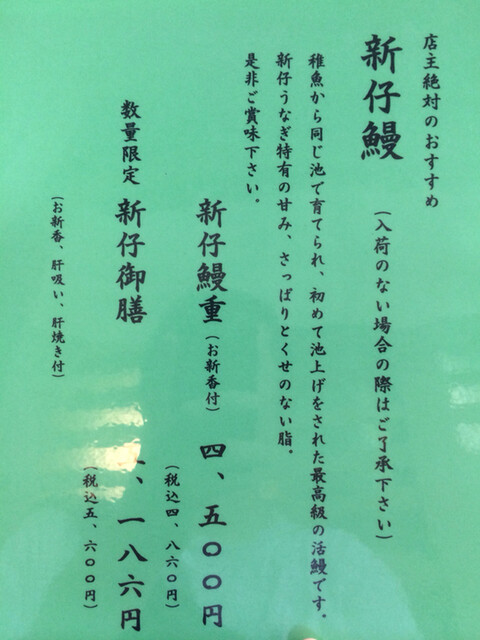 店主絶対のおすすめ
新仔鰻 (入荷のない場合の際はご了承下さい)
稚魚から同じ池で育てられ、初めて池上げをされた最高級の活鰻です。
新仔うなぎ特有の甘み、さっぱりとくせのない脂。
是非ご賞味下さい。
新仔鰻重(お新香付) 四、五〇〇円
(税込四、八六〇円)
数量限定 新仔御膳 、一八六円
(税込五、六〇〇円)
(お新香、肝吸い、肝焼き付)